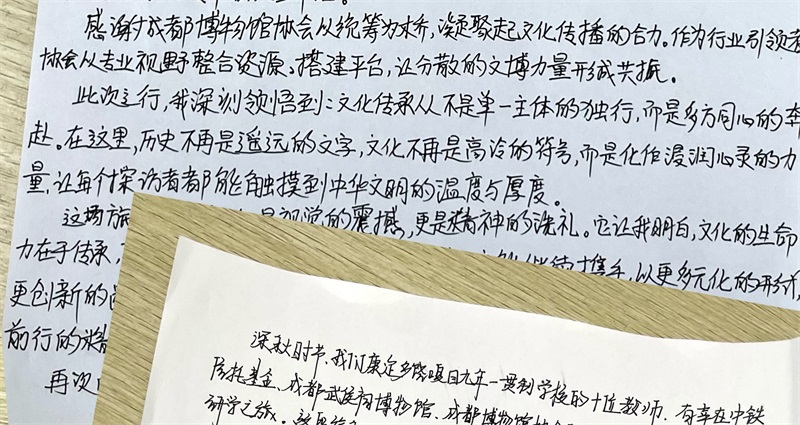 感谢成都博物馆协会以统筹为桥,凝聚起文化传播的合力。作为行业引领者
协会以专业视野整合资源、搭建平台,让分散的文博力量形成共振。
此次之行,我深刻领悟到:文化传承从不是单一主体的独行,而是多方同心的奔
赴。在这里,历史不再是遥远的文字,文化不再是高冷的符号,而是化作浸润心灵的力
量,让每个探访者都能触摸到中华文明的温度与厚度。
这场 是视觉的震撼,更是精神的洗礼。它让我明白,文化的生命
力在于传承, 携手,以更多元化的形式,
更创新的
前行的
再次
深秋时节,我们康定 九年一贯制学校的十位教师,有幸在中铁
信托基金、成都武侯祠博物馆、成都博物馆协会
研学之旅。